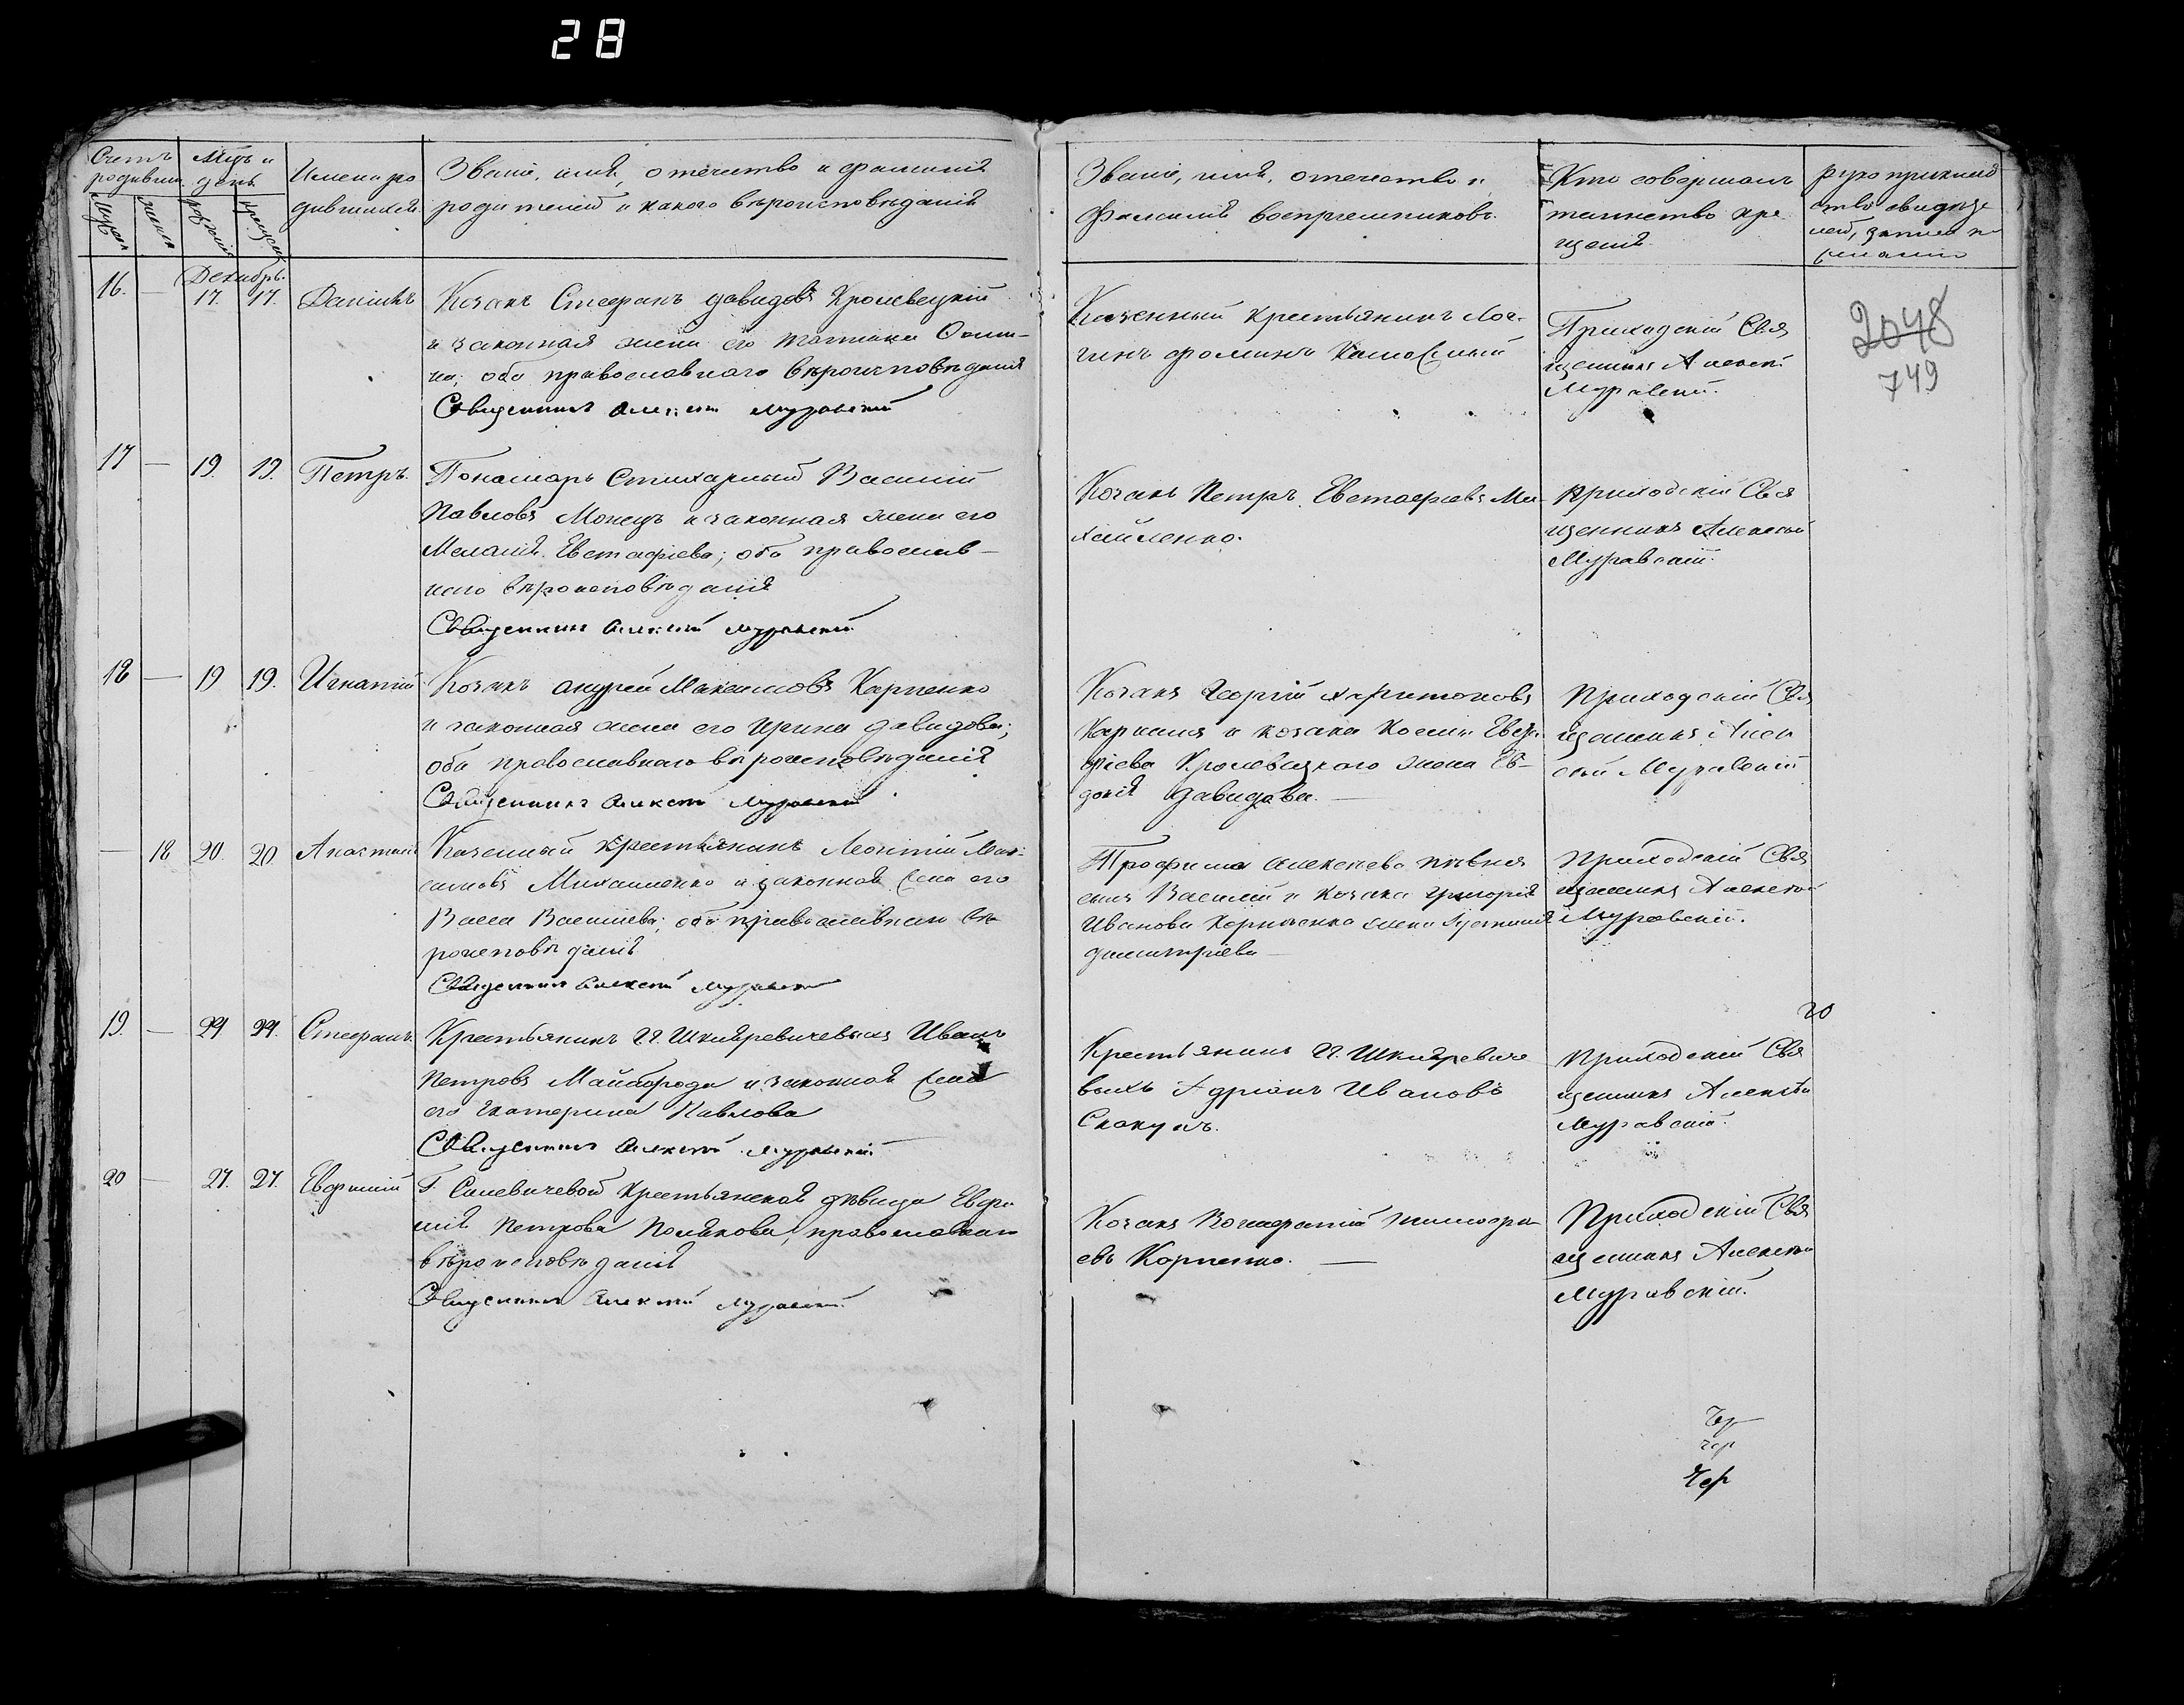 28
Счетъ родивши. Мѣць и день Имена родившихся Званіе, имя, отечество и фамилія
родителей и какого вѣроисповѣданія
Званіе, имя, отечество и
фамилія воспріемниковъ.
Кто совершалъ
таинство кре
щенія.
Рукоприклад
ство свидѣте
лей, записи по
Декабрь.
16. — 17. 17. Даніилъ
Козакъ Стефанъ Давидовъ Кролевецкій
и законная жена его Татіана
на; оба православнаго вѣроисповѣданія
Священникъ Алексій Муравскій
Казенный крестьянинъ Лог
гинъ Фоминъ
Приходскій Свя
щенникъ Алексій
Муравскій.
2048
749
17 — 19. 19. Петръ.
Пономарь Стихарный Василій
Павловъ Монецъ и законная жена его
Меланія Евстафіева; оба православ—
наго вѣроисповѣданія
Священникъ Алексій Муравскій
Козакъ Петръ Евстафіевъ Ми
хайленко.
Приходскій Свя
щенникъ Алексій
Муравскій.
18 — 19 19. Игнатій
Козакъ Андрей Максимовъ Карпенко
и законная жена его Ирина Давидова;
оба православнаго вѣроисповѣданія
Священникъ Алексій Муравскій
Козакъ Георгій Харитоновъ
и козака Космы
фіева Кролевецкаго жена Ев—
докія Давидова. —
Приходскій Свя
щенникъ Алек
сій Муравскій
— 18 20. 20. Анастасія
Казенный крестьянинъ Леонтій Мак
симовъ Михайленко и законная жена его
Васса Васильева; оба православнаго вѣ
роисповѣданія
Священникъ Алексій Муравскій
Трофима Алексѣева
сынъ Василій и козака Григорія
Иванова Корніенка жена
Димитріева —
Приходскій Свя
щенникъ Алексій
Муравскій.
20
19. — 24 24. Стефанъ.
Крестьянинъ Г.Г. Шкляревичевыхъ Иванъ
Петровъ Майборода и законная жена
его Екатерина Павлова
Священникъ Алексій Муравскій
Крестьянинъ Г.Г. Шкляревиче
выхъ Адріанъ Ивановъ
Скакунъ.
Приходскій Свя
щенникъ Алексій
Муравскій.
20 — 27. 27. Евфимій
Г. Силевичевой крестьянская дѣвица Евфи
мія Петрова Полякова, православнаго
вѣроисповѣданія
Священникъ Алексій Муравскій.
Козакъ
евъ Карпенко. —
Приходскій Свя
щенникъ Алексій
Муравскій.
Чер
чер
Чер